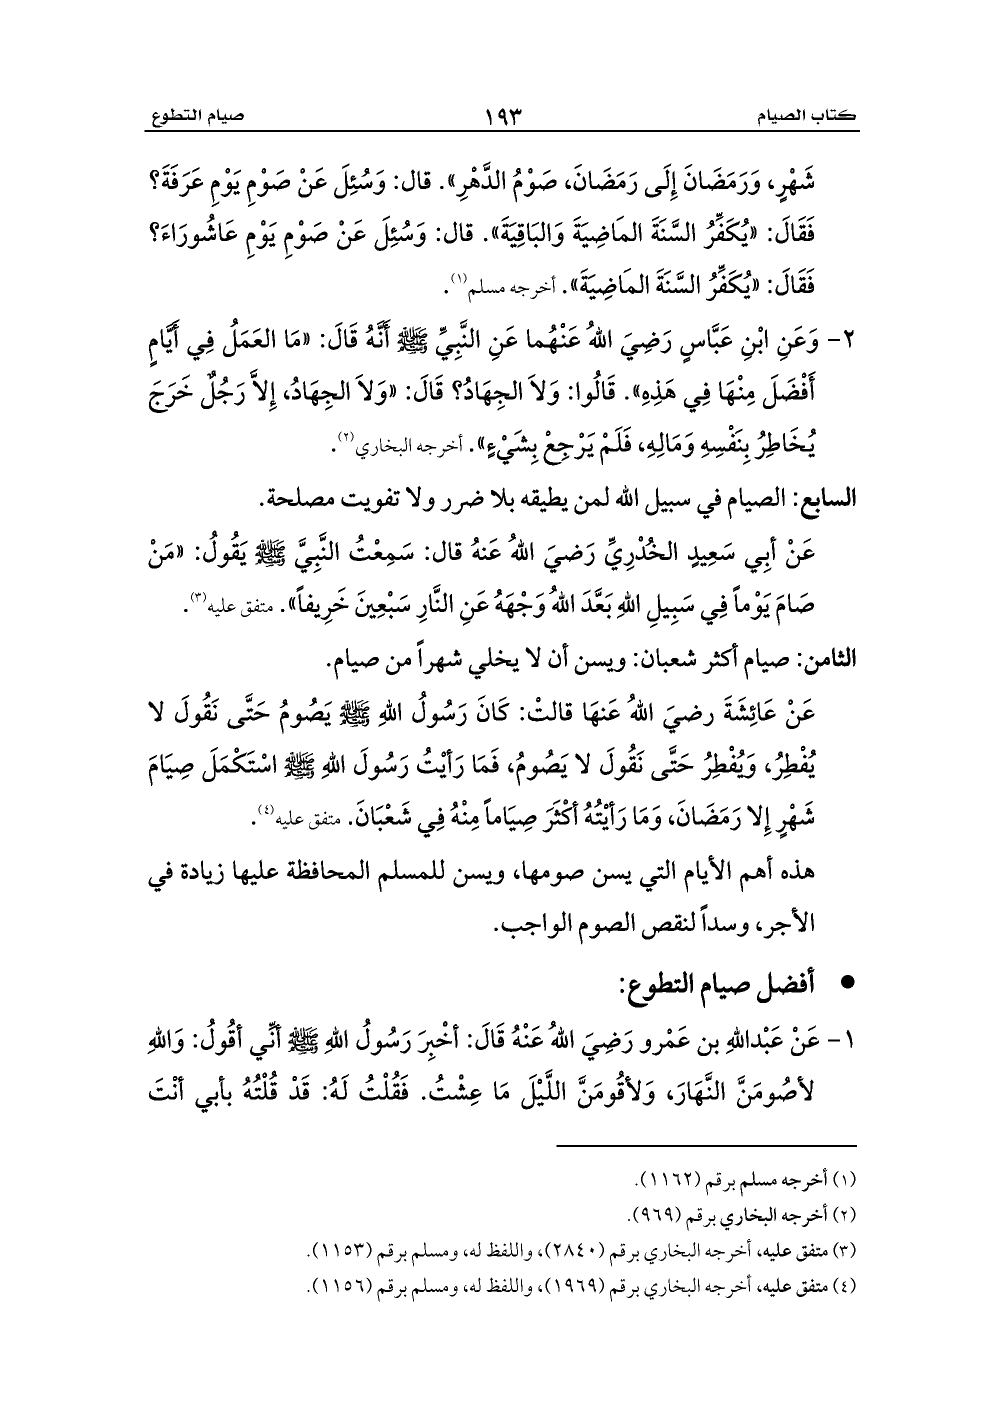 كتاب الصيام ١٩٣ صيام التطوع
شَهْرٍ، وَرَمَضَانَ إِلَى رَمَضَانَ، صَوْمُ الدَّهْرِ». قال: وَسُئِلَ عَنْ صَوْمِ يَوْمِ عَرَفَةَ؟
فَقَالَ: «يُكَفِّرُ السَّنَةَ المَاضِيَةَ وَالبَاقِيَةَ». قال: وَسُئِلَ عَنْ صَوْمِ يَوْمِ عَاشُورَاءَ؟
فَقَالَ: «يُكَفِّرُ السَّنَةَ المَاضِيَةَ». أخرجه مسلم(١).
٢- وَعَنِ ابْنِ عَبَّاسٍ رَضِيَ اللهُ عَنْهُما عَنِ النَّبِيِّ ﷺ أَنَّهُ قَالَ: «مَا العَمَلُ فِي أَيَّامٍ
أَفْضَلَ مِنْهَا فِي هَذِهِ». قَالُوا: وَلاَ الجِهَادُ؟ قَالَ: «وَلاَ الجِهَادُ، إِلاَّ رَجُلٌ خَرَجَ
يُخَاطِرُ بِنَفْسِهِ وَمَالِهِ، فَلَمْ يَرْجِعْ بِشَيْءٍ». أخرجه البخاري(٢).
السابع: الصيام في سبيل الله لمن يطيقه بلا ضرر ولا تفويت مصلحة.
عَنْ أبِي سَعِيدٍ الخُدْرِيِّ رَضيَ اللهُ عَنهُ قال: سَمِعْتُ النَّبِيَّ ﷺ يَقُولُ: «مَنْ
صَامَ يَوْماً فِي سَبِيلِ اللهِ بَعَّدَ اللهُ وَجْهَهُ عَنِ النَّارِ سَبْعِينَ خَرِيفاً». متفق عليه(٣).
الثامن: صيام أكثر شعبان: ويسن أن لا يخلي شهراً من صيام.
عَنْ عَائِشَةَ رضيَ اللهُ عَنهَا قالتْ: كَانَ رَسُولُ اللهِ ﷺ يَصُومُ حَتَّى نَقُولَ لا
يُفْطِرُ، وَيُفْطِرُ حَتَّى نَقُولَ لا يَصُومُ، فَمَا رَأيْتُ رَسُولَ اللهِ ﷺ اسْتَكْمَلَ صِيَامَ
شَهْرٍ إلا رَمَضَانَ، وَمَا رَأيْتُهُ أكْثَرَ صِيَاماً مِنْهُ فِي شَعْبَانَ. متفق عليه(٤).
هذه أهم الأيام التي يسن صومها، ويسن للمسلم المحافظة عليها زيادة في
الأجر، وسداً لنقص الصوم الواجب.
● أفضل صيام التطوع:
١- عَنْ عَبْدِاللهِ بن عَمْرو رَضِيَ اللهُ عَنْهُ قَالَ: أخْبِرَ رَسُولُ اللهِ ﷺ أنِّي أقُولُ: وَاللهِ
لأصُومَنَّ النَّهَارَ، وَلأقُومَنَّ اللَّيْلَ مَا عِشْتُ. فَقُلْتُ لَهُ: قَدْ قُلْتُهُ بأبي أنْتَ
(١) أخرجه مسلم برقم (١١٦٢).
(٢) أخرجه البخاري برقم (٩٦٩).
(٣) متفق عليه، أخرجه البخاري برقم (٢٨٤٠)، واللفظ له، ومسلم برقم (١١٥٣).
(٤) متفق عليه، أخرجه البخاري برقم (١٩٦٩)، واللفظ له، ومسلم برقم (١١٥٦).